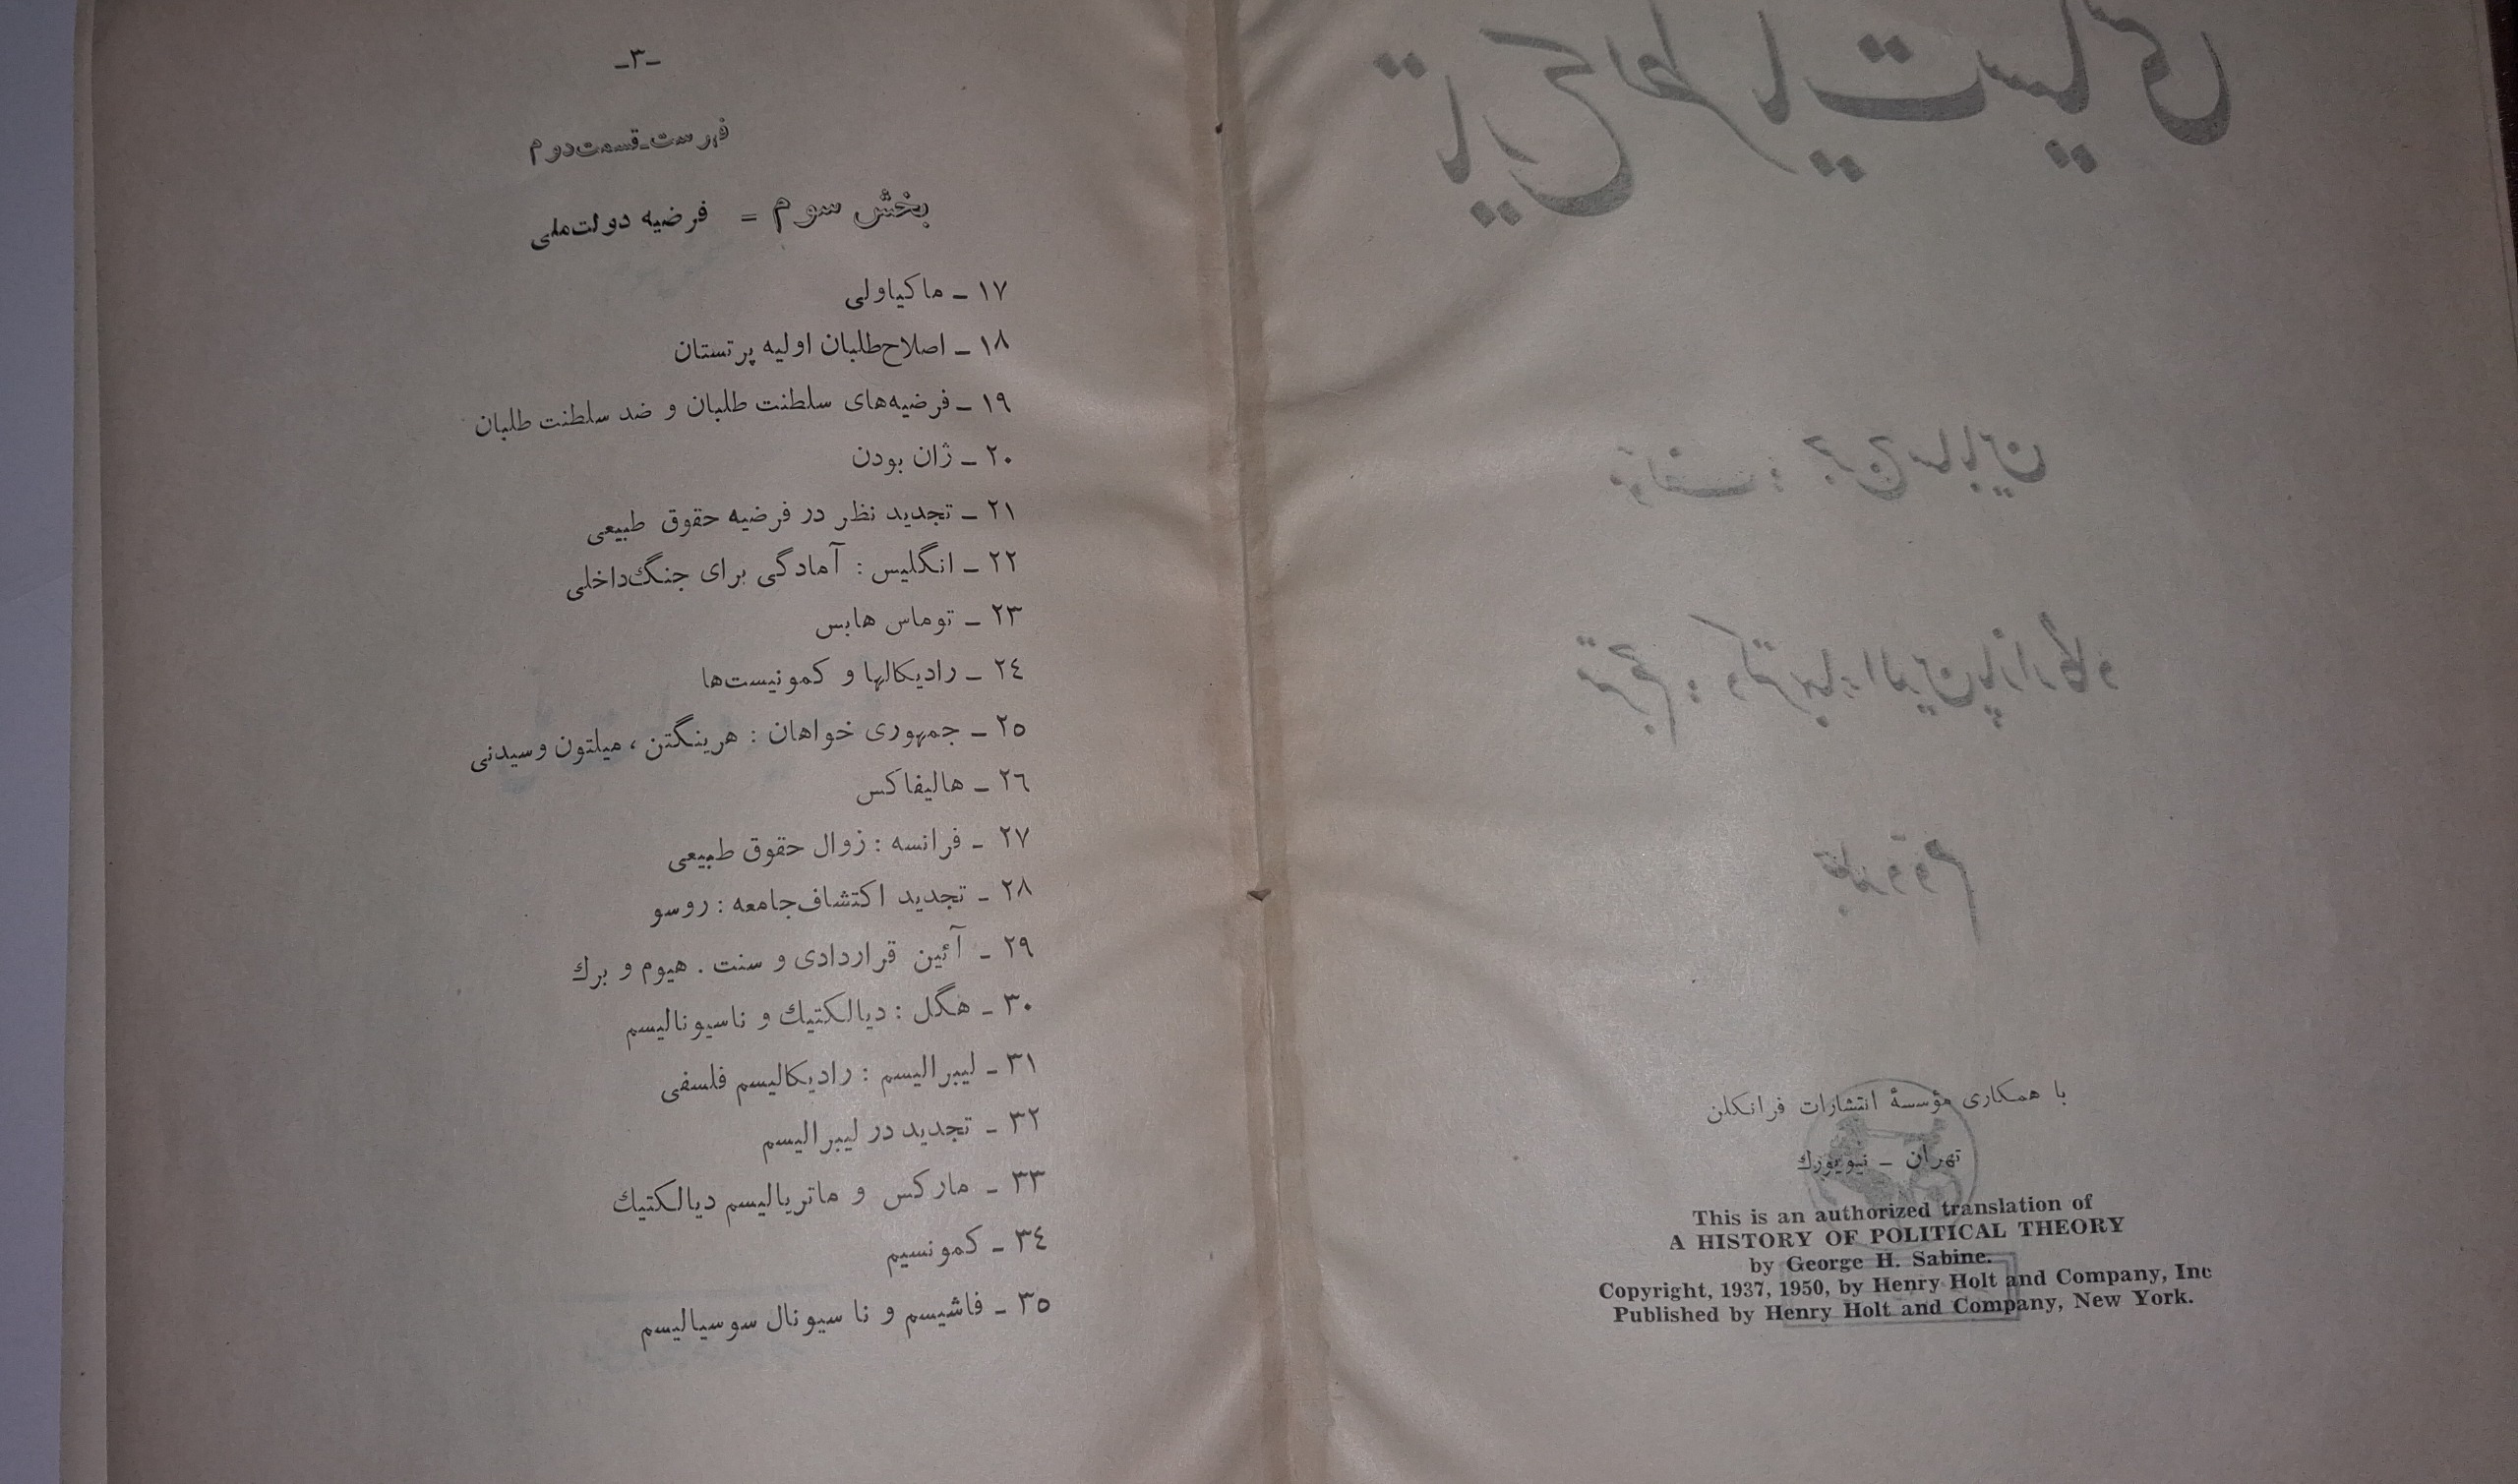 با همکاری مؤسسهٔ انتشارات فرانکلن
تهران ـ نیویورك
This is an authorized translation of
A HISTORY OF POLITICAL THEORY
by George H. Sabine.
Copyright, 1937, 1950, by Henry Holt and Company, Inc
Published by Henry Holt and Company, New York.
ـ۳ـ
فهرست ـ قسمت دوم
بخش سوم = فرضیه دولت ملی
۱۷ ـ ماکیاولی
۱۸ ـ اصلاح‌طلبان اولیه پرتستان
۱۹ ـ فرضیه‌های سلطنت طلبان و ضد سلطنت طلبان
۲۰ ـ ژان بودن
۲۱ ـ تجدید نظر در فرضیه حقوق طبیعی
۲۲ ـ انگلیس : آمادگی برای جنگ‌داخلی
۲۳ ـ توماس هابس
۲٤ ـ رادیکالها و کمونیست‌ها
۲٥ ـ جمهوری خواهان : هرینگتن ، میلتون وسیدنی
۲٦ ـ هالیفاکس
۲۷ ـ فرانسه : زوال حقوق طبیعی
۲۸ ـ تجدید اکتشاف‌جامعه : روسو
۲۹ ـ آئین قراردادی و سنت . هیوم و برك
۳۰ ـ هگل : دیالکتیك و ناسیونالیسم
۳۱ ـ لیبرالیسم : رادیکالیسم فلسفی
۳۲ ـ تجدید در لیبرالیسم
۳۳ ـ مارکس و ماتریالیسم دیالکتیك
۳٤ ـ کمونسیم
۳٥ ـ فاشیسم و نا سیونال سوسیالیسم